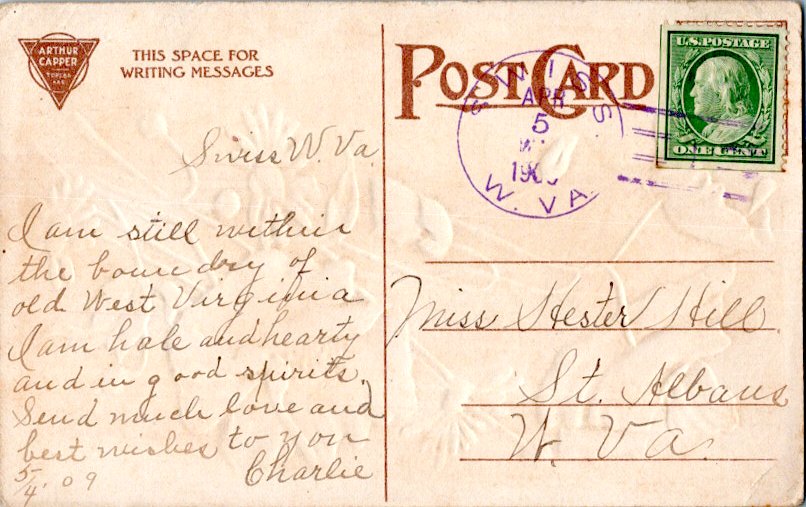 ARTHUR
CAPPER
TOPEKA
KAS
THIS SPACE FOR
WRITING MESSAGES
POST CARD
SWISS
APR
5
W. VA.
U.S. POSTAGE
ONE CENT
Swiss W. Va.
I am still within
the boundry of
old West Virginia
I am hale and hearty
and in good spirits.
Send much love and
best wishes to you
Charlie
5/4. 09
Miss Hester Hill
St. Albans
W. Va.